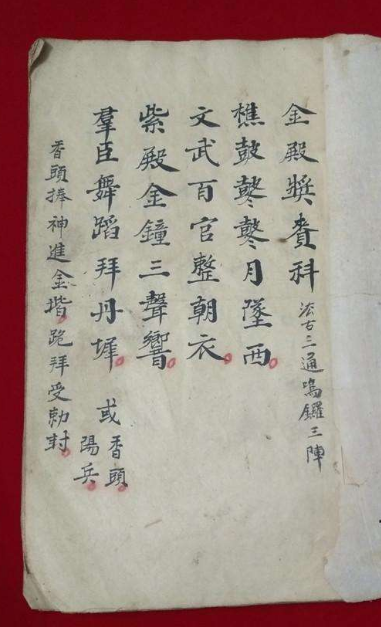 金殿奬賚科 法古三通鳴鑼三陣
樵鼓鼕鼕月墜西
文武百官整朝衣
紫殿金鐘三聲響
羣臣舞蹈拜丹墀 或香頭陽兵
香頭捧神進金堦跪拜受勅封